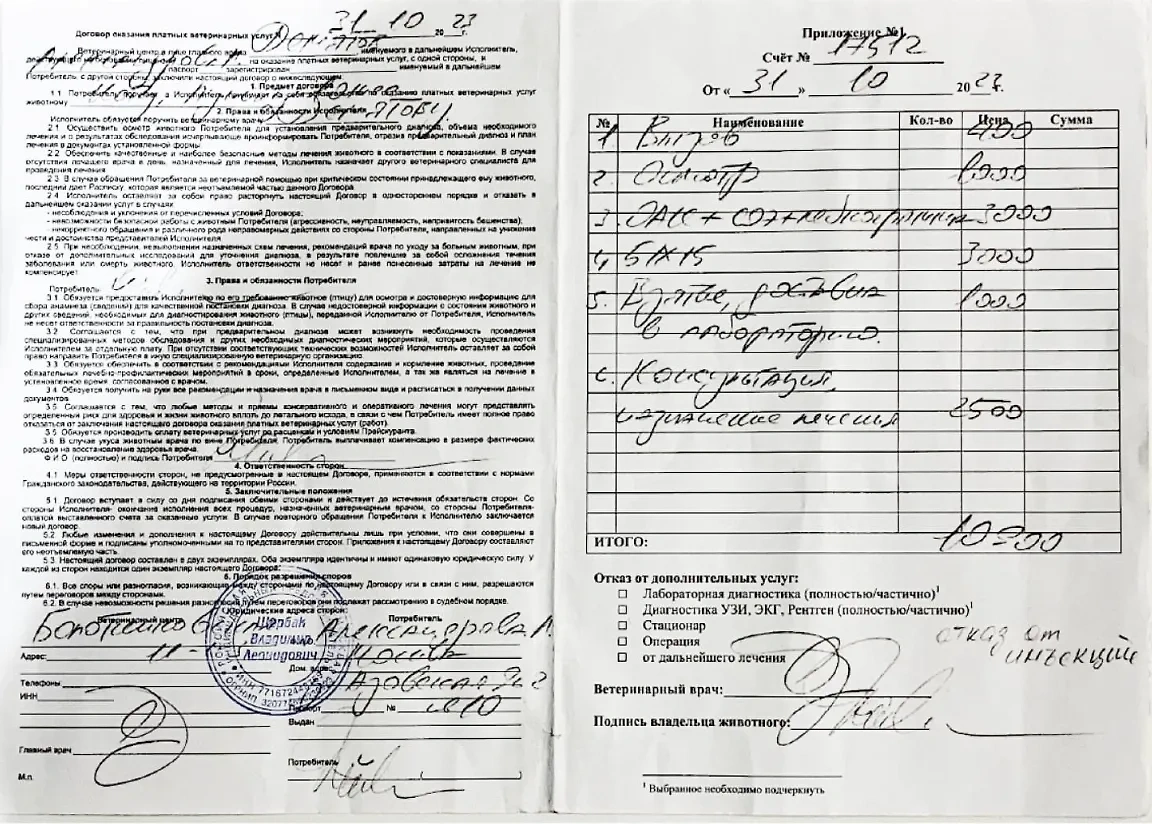 Договор оказания платных ветеринарных услуг 31 10 2023г.
Ветеринарный центр в лице главного врача именуемого в дальнейшем Исполнитель,
на оказание платных ветеринарных услуг, с одной стороны, и
паспорт зарегистрирован именуемый в дальнейшем
Потребитель с другой стороны, заключили настоящий договор о нижеследующем.
1. Предмет договора
1.1 Потребитель поручает, а Исполнитель принимает на себя обязательство по оказанию платных ветеринарных услуг
животному
2. Права и обязанности Исполнителя
Исполнитель обязуется поручить ветеринарному врачу
2.1. Осуществить осмотр животного Потребителя для установления предварительного диагноза, объема необходимого
лечения и о результатах обследования исчерпывающе проинформировать Потребителя, отразив предварительный диагноз и план
лечения в документах установленной формы.
2.2 Обеспечить качественные и наиболее безопасные методы лечения животного в соответствии с показаниями. В случае
отсутствия лечащего врача в день, назначенный для лечения, Исполнитель назначает другого ветеринарного специалиста для
проведения лечения.
2.3 В случае обращения Потребителя за ветеринарной помощью при критическом состоянии принадлежащего ему животного,
последний дает Расписку, которая является неотъемлемой частью данного Договора.
2.4 Исполнитель оставляет за собой право расторгнуть настоящий Договор в одностороннем порядке и отказать в
дальнейшем оказании услуг в случаях
- несоблюдения и уклонения от перечисленных условий Договора;
- невозможности безопасной работы с животным Потребителя (агрессивность, неуправляемость, напривитость бешенства);
- некорректного обращения и различного рода неправомерных действиях со стороны Потребителя, направленных на унижение
чести и достоинства представителей Исполнителя
2.5 При несоблюдении, невыполнении назначенных схем лечения, рекомендаций врача по уходу за больным животным, при
отказе от дополнительных исследований для уточнения диагноза, в результате повлекшие за собой осложнения течения
заболевания или смерть животного. Исполнитель ответственности не несет и ранее понесенные затраты на лечение не
компенсирует.
3. Права и обязанности Потребителя
Потребитель
3.1 Обязуется предоставить Исполнителю по его требованию животное (птицу) для осмотра и достоверную информацию для
сбора анамнеза (сведений) для качественной постановки диагноза. В случае недостоверной информации о состоянии животного и
других сведений, необходимых для диагностирования животного (птицы), переданной Исполнителю от Потребителя, Исполнитель
не несет ответственности за правильность постановки диагноза.
3.2 Соглашается с тем, что при предварительном диагнозе может возникнуть необходимость проведения
специализированных методов обследования и других необходимых диагностических мероприятий, которые осуществляются
Исполнителем за отдельную плату. При отсутствии соответствующих технических возможностей Исполнитель оставляет за собой
право направить Потребителя в иную специализированную ветеринарную организацию.
3.3 Обязуется обеспечить в соответствии с рекомендациями Исполнителя содержание и кормление животного, проведение
обязательных лечебно-профилактических мероприятий в сроки, определенные Исполнителем, а так же являться на лечение в
установленное время, согласованное с врачом.
3.4 Обязуется получить на руки все рекомендации и назначения врача в письменном виде и расписаться в получении данных
документов.
3.5 Соглашается с тем, что любые методы и приемы консервативного и оперативного лечения могут представлять
определенный риск для здоровья и жизни животного вплоть до летального исхода, в связи с чем Потребитель имеет полное право
отказаться от заключения настоящего договора оказания платных ветеринарных услуг (работ).
3.5 Обязуется производить оплату ветеринарных услуг по расценкам и условиям Прейскуранта.
3.6 В случае укуса животным врача по вине Потребителя. Потребитель выплачивает компенсацию в размере фактических
расходов на восстановление здоровья врача.
Ф.И.О. (полностью) и подпись Потребителя
4. Ответственность сторон
4.1 Меры ответственности сторон, не предусмотренные в настоящем Договоре, применяются в соответствии с нормами
Гражданского законодательства, действующего на территории России.
5. Заключительные положения
5.1 Договор вступает в силу со дня подписания обеими сторонами и действует до истечения обязательств сторон. Со
стороны Исполнителя- окончание исполнения всех процедур, назначенных ветеринарным врачом, со стороны Потребителя-
оплатой выставленного счета за оказанные услуги. В случае повторного обращения Потребителя к Исполнителю заключается
новый договор.
5.2. Любые изменения и дополнения к настоящему Договору действительны лишь при условии, что они совершены в
письменной форме и подписаны уполномоченными на то представителями сторон. Приложения к настоящему Договору составляют
его неотъемлемую часть.
5.3 Настоящий договор составлен в двух экземплярах. Оба экземпляра идентичны и имеют одинаковую юридическую силу. У
каждой из сторон находится один экземпляр настоящего Договора;
6. Порядок разрешения споров
6.1. Все споры или разногласия, возникающие между сторонами по настоящему Договору или в связи с ним, разрешаются
путем переговоров между сторонами.
6.2. В случае невозможности решения разногласий путем переговоров они подлежат рассмотрению в судебном порядке.
Юридические адреса сторон:
Ветеринарный центр Потребитель
Александрова А.
Щербак
Владимир
Леонидович
Адрес: Дом. адрес Москва
Телефоны Азовская
ИНН Паспорт №
Выдан
Главный врач
Потребитель
М.п.
Приложение №1
Счёт № 17512
От « 31 » 10 2023г.
№ Наименование Кол-во Цена Сумма
1 Вызов 400
2. Осмотр 1000
3. ОАК + СОЭ + 3000
4. БХ 15 3000
5. Взятие, доставка 1000
в лабораторию.
6. Консультация,
назначение лечения 2500
ИТОГО: 10900
Отказ от дополнительных услуг:
Лабораторная диагностика (полностью/частично)¹
Диагностика УЗИ, ЭКГ, Рентген (полностью/частично)¹
Стационар
Операция
от дальнейшего лечения
отказ от
инъекций
Ветеринарный врач:
Подпись владельца животного:
¹ Выбранное необходимо подчеркнуть